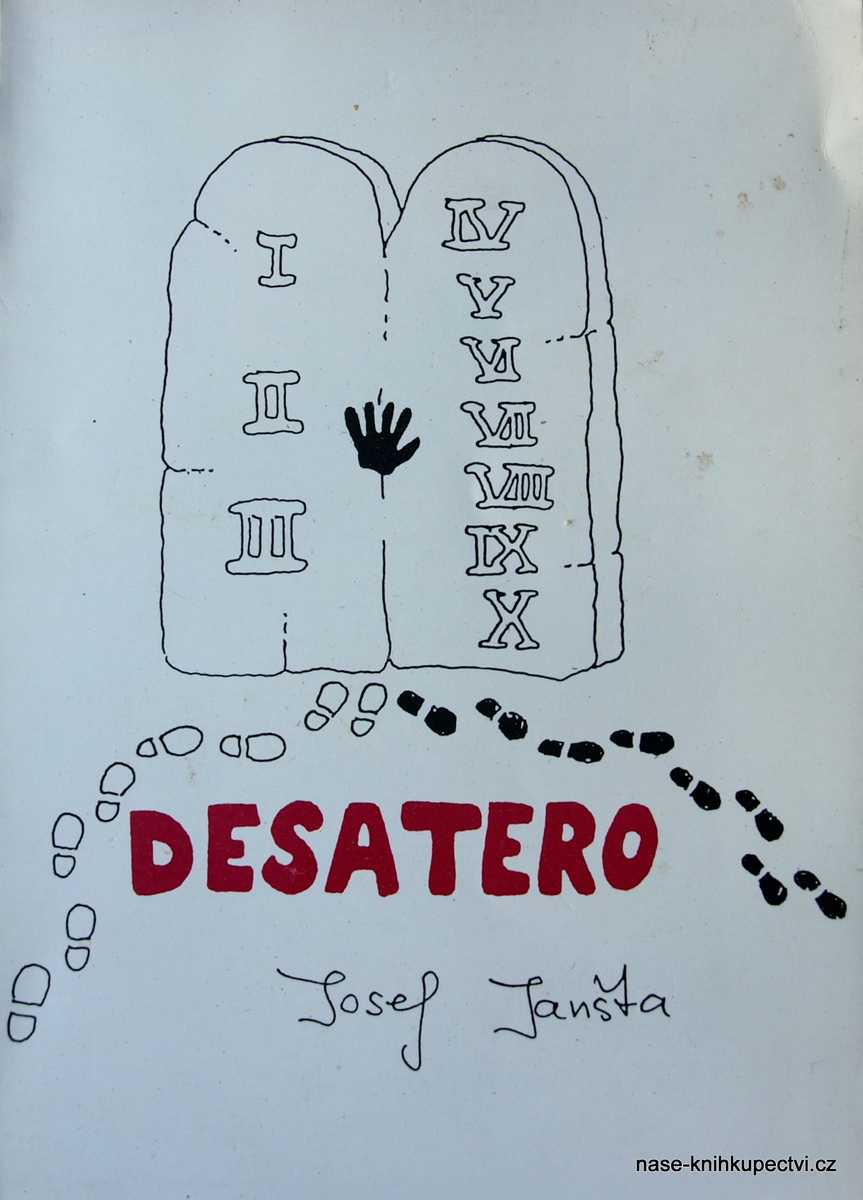 I
II
III
IV
V
VI
VII
VIII
IX
X
DESATERO
Josef Janšta
nase-knihkupectvi.cz